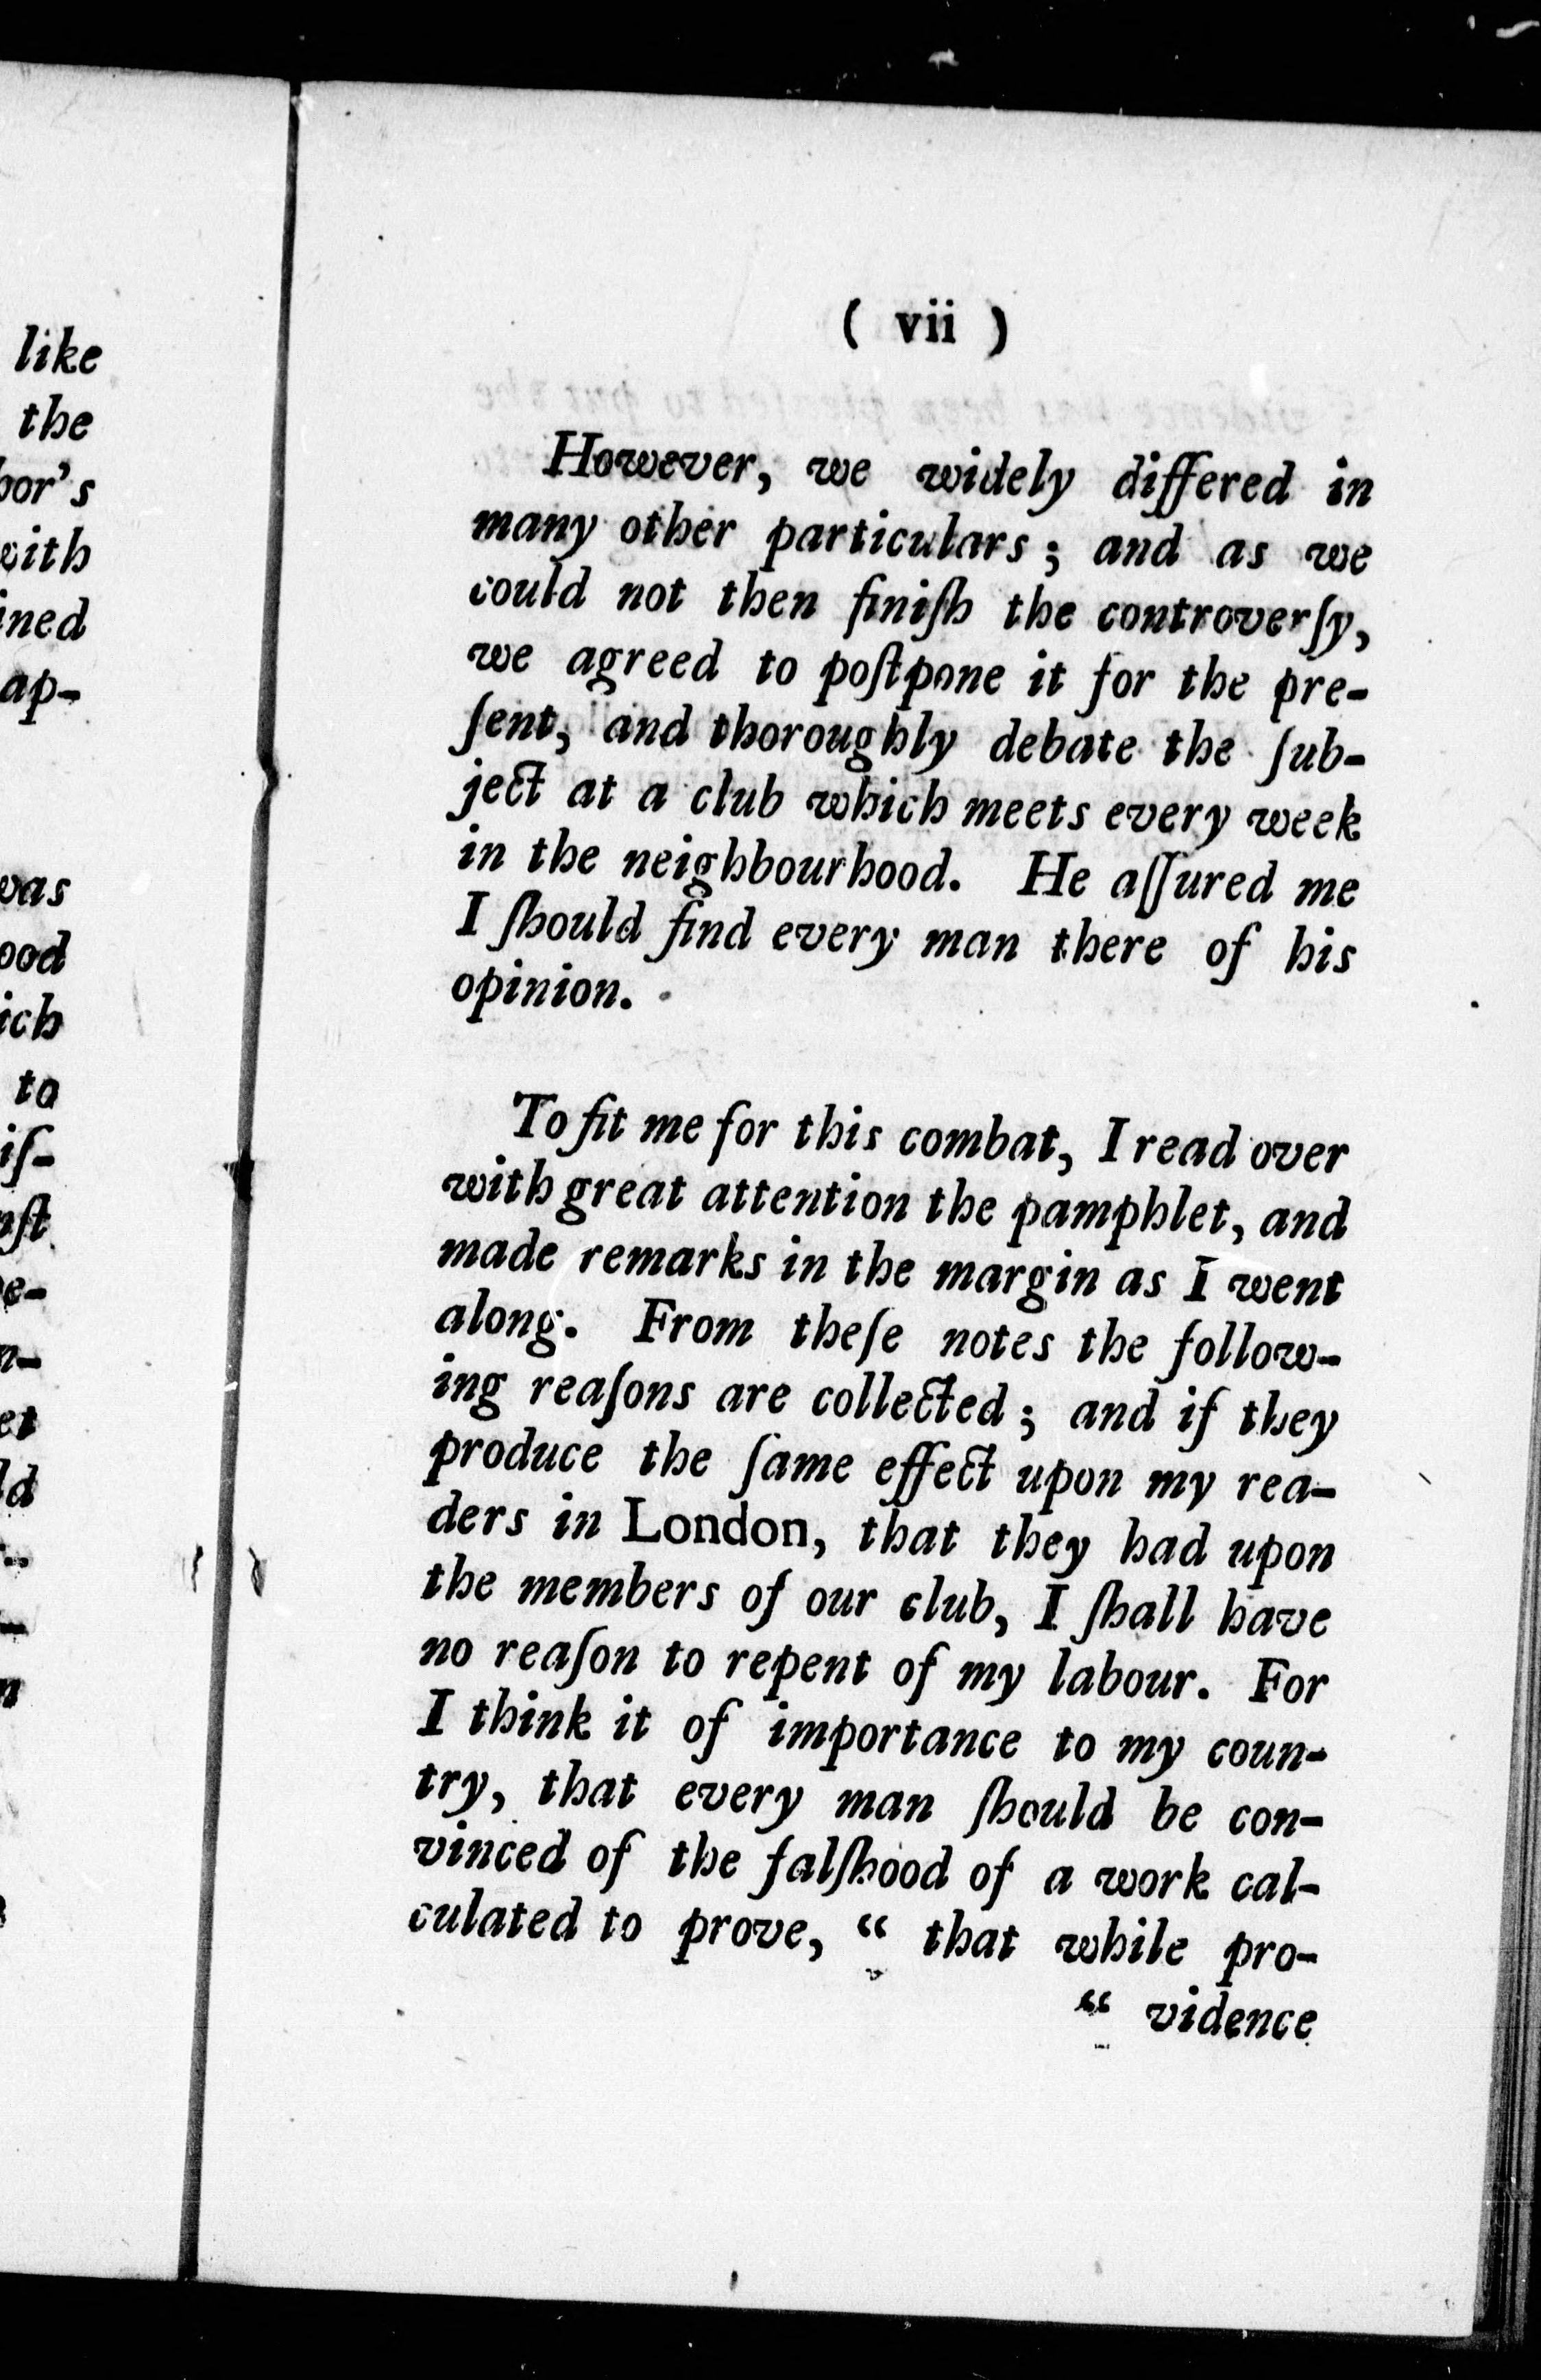 like
the
with
ap-
was
ich
to
( vii )
However, we widely differed in
many other particulars; and as we
could not then finiſh the controverſy,
we agreed to poſtpone it for the pre-
ſent, and thoroughly debate the ſub-
ject at a club which meets every week
in the neighbourhood. He aſſured me
I ſhould find every man there of his
opinion.
To fit me for this combat, I read over
with great attention the pamphlet, and
made remarks in the margin as I went
along. From theſe notes the follow-
ing reaſons are collected; and if they
produce the ſame effect upon my rea-
ders in London, that they had upon
the members of our club, I ſhall have
no reaſon to repent of my labour. For
I think it of importance to my coun-
try, that every man ſhould be con-
vinced of the falſhood of a work cal-
culated to prove, “ that while pro-
“ vidence